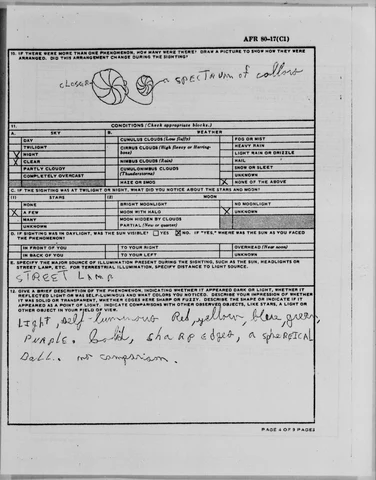 AFR 80-17(C1)
10. IF THERE WERE MORE THAN ONE PHENOMENON, HOW MANY WERE THERE? DRAW A PICTURE TO SHOW HOW THEY WERE
ARRANGED. DID THIS ARRANGEMENT CHANGE DURING THE SIGHTING?
a SPECTRUM of collors
11. CONDITIONS (Check appropriate blocks.)
A. SKY B. WEATHER
DAY CUMULUS CLOUDS (Low fluffy) FOG OR MIST
TWILIGHT CIRRUS CLOUDS (High fleecy or Herring-bone) HEAVY RAIN
X NIGHT LIGHT RAIN OR DRIZZLE
X CLEAR NIMBUS CLOUDS (Rain) HAIL
PARTLY CLOUDY CUMULONIMBUS CLOUDS (Thunderstorms) SNOW OR SLEET
COMPLETELY OVERCAST UNKNOWN
HAZE OR SMOG X NONE OF THE ABOVE
C. IF THE SIGHTING WAS AT TWILIGHT OR NIGHT, WHAT DID YOU NOTICE ABOUT THE STARS AND MOON?
(1) STARS (2) MOON
NONE BRIGHT MOONLIGHT NO MOONLIGHT
X A FEW MOON WITH HALO X UNKNOWN
MANY MOON HIDDEN BY CLOUDS
UNKNOWN PARTIAL (New or quarter)
D. IF SIGHTING WAS IN DAYLIGHT, WAS THE SUN VISIBLE? YES X NO. IF "YES," WHERE WAS THE SUN AS YOU FACED
THE PHENOMENON?
IN FRONT OF YOU TO YOUR RIGHT OVERHEAD (Near noon)
IN BACK OF YOU TO YOUR LEFT UNKNOWN
E. SPECIFY THE MAJOR SOURCE OF ILLUMINATION PRESENT DURING THE SIGHTING, SUCH AS THE SUN, HEADLIGHTS OR
STREET LAMP, ETC. FOR TERRESTRIAL ILLUMINATION, SPECIFY DISTANCE TO LIGHT SOURCE.
STREET LAMP
12. GIVE A BRIEF DESCRIPTION OF THE PHENOMENON, INDICATING WHETHER IT APPEARED DARK OR LIGHT, WHETHER IT
REFLECTED LIGHT OR WAS SELF-LUMINOUS AND WHAT COLORS YOU NOTICED. DESCRIBE YOUR IMPRESSION OF WHETHER
IT WAS SOLID OR TRANSPARENT, WHETHER EDGES WERE SHARP OR FUZZY. DESCRIBE THE SHAPE OR INDICATE IF IT
APPEARED AS A POINT OF LIGHT. INDICATE COMPARISONS WITH OTHER OBSERVED OBJECTS, LIKE STARS, A LIGHT OR
OTHER OBJECT IN YOUR FIELD OF VIEW.
Light, self-luminous Red, yellow, blue, green,
PURPLE. Solid, sharp edges, a SPHERICAL
Ball. no comparison.
PAGE 4 OF 9 PAGES